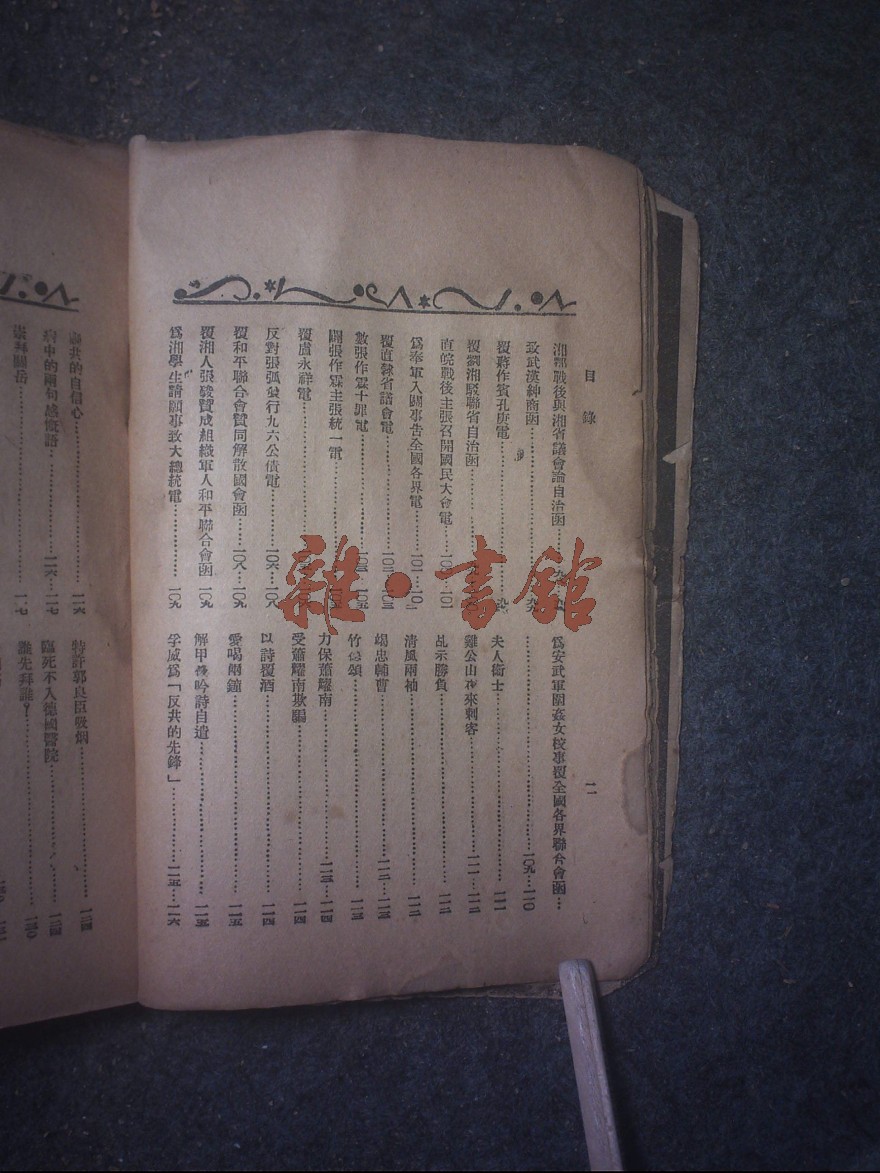 目錄
湘鄂戰後與湘省議會論自治函
致武漢紳商函
覆蔣作賓孔庚電
覆劉湘駁聯省自治函
直皖戰後主張召開國民大會電 一〇一
爲奉軍入關事告全國各界電 一〇一 一〇二
覆直隸省議會電
數張作霖十罪電
闢張作霖主張統一電
覆盧永祥電
反對張弧發行九六公債電 一〇六 一〇八
覆和平聯合會贊同解散國會函 一〇八 一〇九
覆湘人張駿贊成組織軍人和平聯合會函 一〇九
爲湘學生請願事致大總統電 一〇九
爲安武軍闖姦女校事覆全國各界聯合會函
一〇九 一一〇
夫人衛士 一一一
雞公山夜來刺客 一一一 一一二
乩示勝負 一一二
清風兩袖 一一二
竭忠輔曹 一一二 一一三
竹
頌 一一三
力保蕭耀南 一一三 一一四
受蕭耀南欺騙 一一四
以詩覆酒 一一四
愛喝兩鐘 一一五
解甲後吟詩自遣 一一五
孚威爲「反共的先鋒」 一一五 一一六
二
共的自信心 一一六
病中的兩句感慨語 一一六 一一七
崇拜關岳 一一七
特許郭良臣吸烟
臨死不入德國醫院
誰先拜誰?
雜·書館